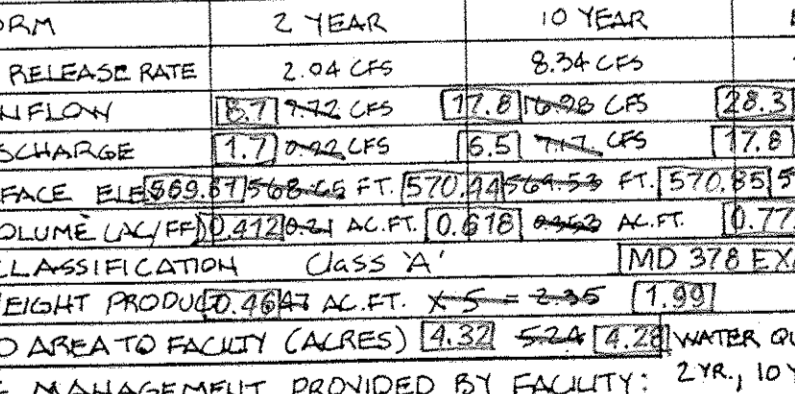 ORM 2 YEAR 10 YEAR
RELEASE RATE 2.04 CFS 8.34 CFS
NFLOW 8.7 9.72 CFS 17.8 16.98 CFS 28.3
SCHARGE 1.7 0.92 CFS 6.5 7.17 CFS 17.8
FACE ELE 569.67 568.65 FT. 570.44 569.53 FT. 570.85 5
OLUME (AC/FF) 0.412 0.21 AC.FT. 0.618 0.353 AC.FT. 0.77
CLASSIFICATION Class 'A' MD 378 EXA
EIGHT PRODUC 0.46 47 AC.FT. X 5 = 2.35 1.99
D AREA TO FACILITY (ACRES) 4.32 5.24 4.28 WATER QU
MANAGEMENT PROVIDED BY FACILITY: 2 YR., 10 Y